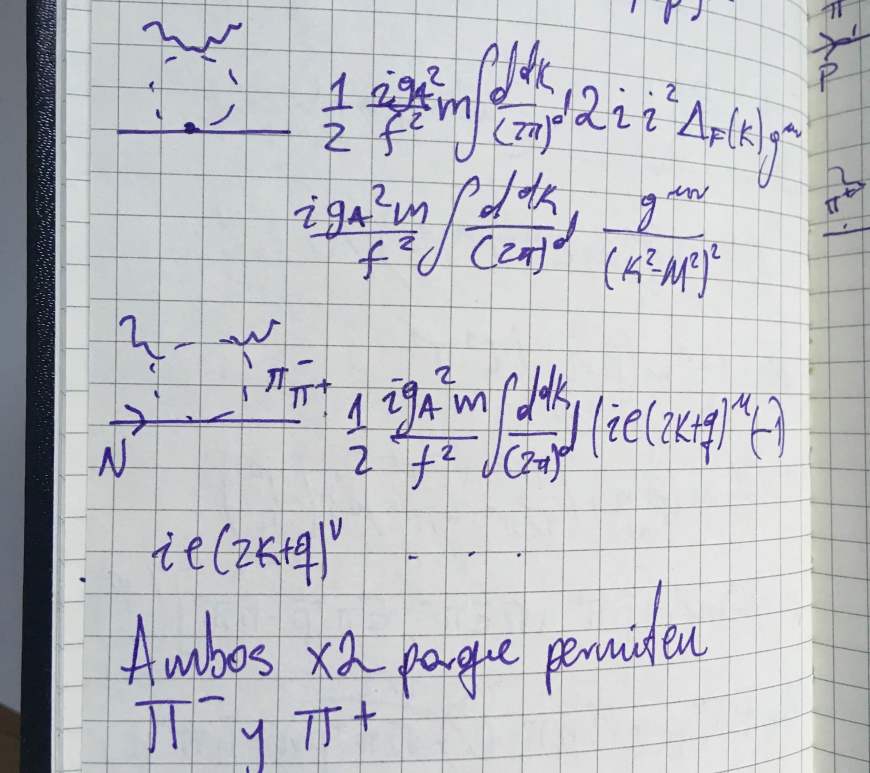 1/2 i g_A^2/f^2 m ∫ d^dk/(2π)^d 2 i i^2 Δ_F(k) g^{μν}
i g_A^2 m/f^2 ∫ d^dk/(2π)^d g^{μν}/(k^2-M^2)^2
π^-
π^+
N
1/2 i g_A^2 m/f^2 ∫ d^dk/(2π)^d (ie(2k+q)^μ(-1)
ie(2k+q)^ν . . .
Ambos x2 porque permiten
π^- y π^+